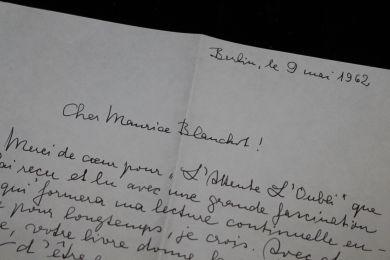 Berlin, le 9 mai 1962
Cher Maurice Blanchot !
Merci de cœur pour „L'Attente L'Oubli" que
ai reçu et lu avec une grande fascination
qui formera ma lecture continuelle en-
pour longtemps, je crois. Avec
, votre livre donne
d'être